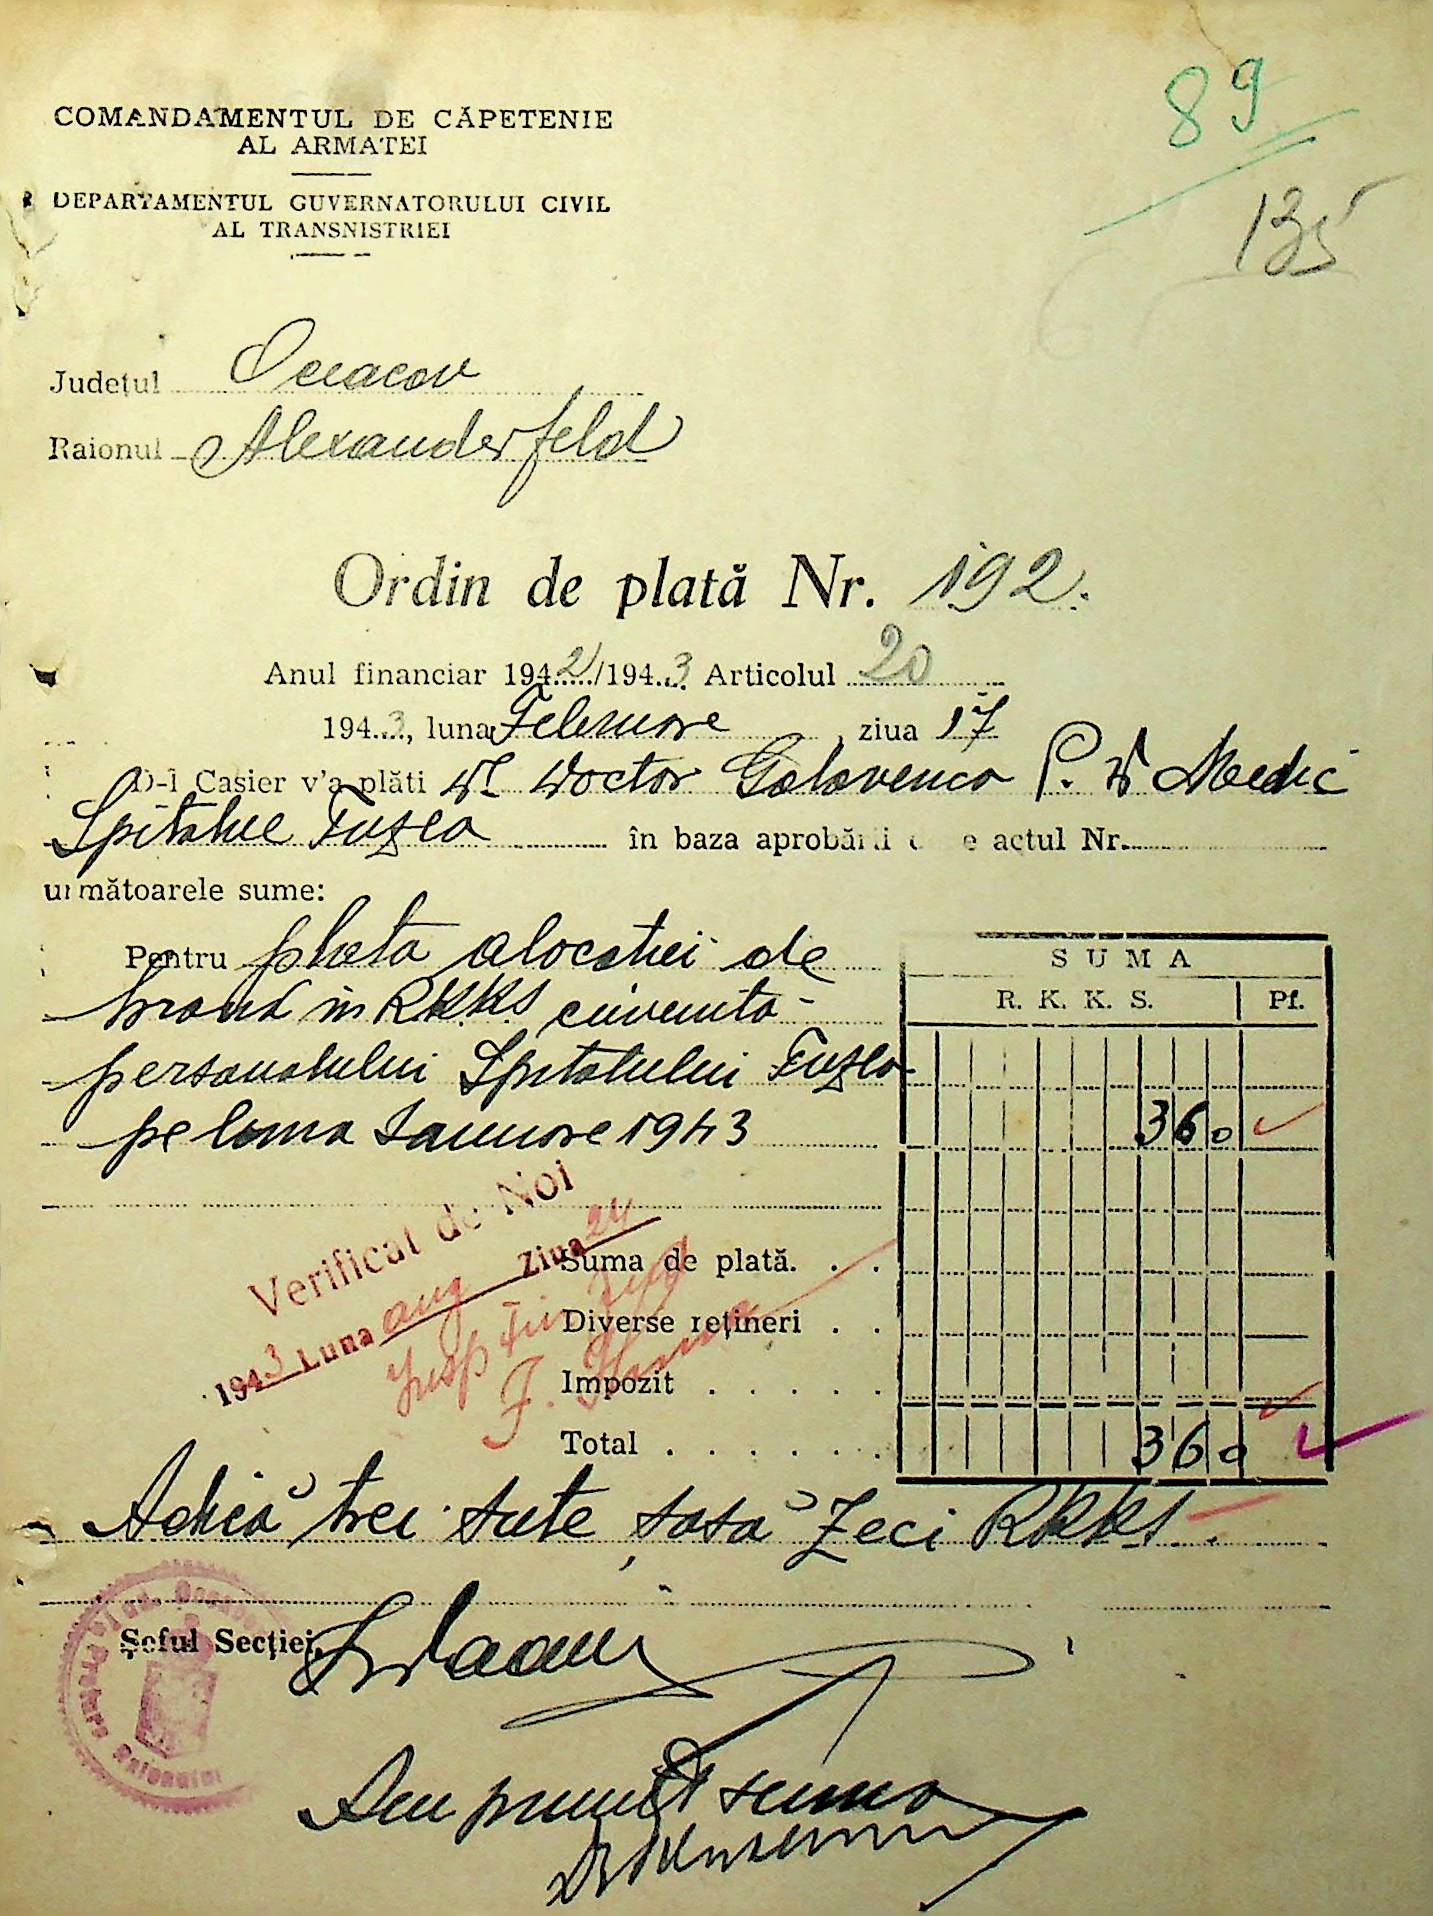 89
135
COMANDAMENTUL DE CĂPETENIE
AL ARMATEI
DEPARTAMENTUL GUVERNATORULUI CIVIL
AL TRANSNISTRIEI
Județul Oceacov
Raionul Alexanderfeld
Ordin de plată Nr. 192.
Anul financiar 1942/1943 Articolul 20
1943, luna Februarie, ziua 17
D-l Casier v'a plăti Doctor Golovenco P. Medic
Spitalul Tuzla în baza aprobării actul Nr.
următoarele sume:
Pentru plata alocatiei de
hrană in RKKS cuvenita
personalului Spitalului Tuzla
pe luna Ianuarie 1943
SUMA
R. K. K. S. Pf.
360
Verificat de Noi
1943 Luna aug Ziua 24
Suma de plată. . .
Diverse rețineri . .
Impozit . . . . . .
Total . . . . . . . 360
Adică trei sute șasă zeci RKKS.
Șeful Secției,
Am primit suma